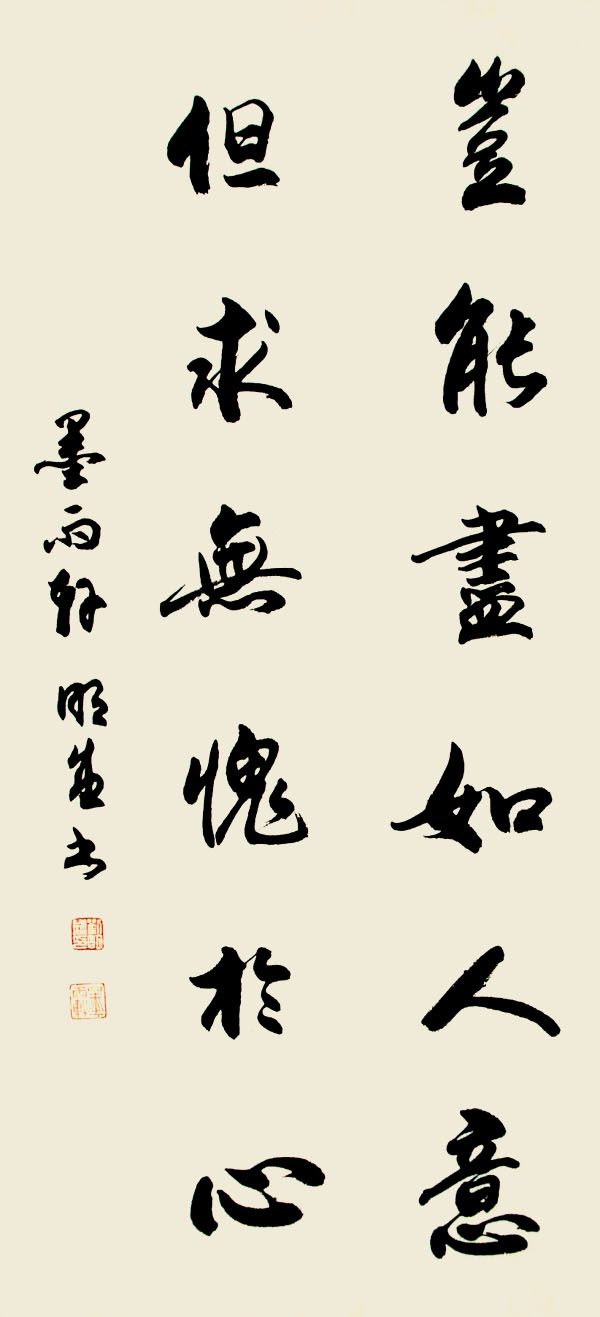 豈能盡如人意
但求無愧於心
墨雨軒 明益书